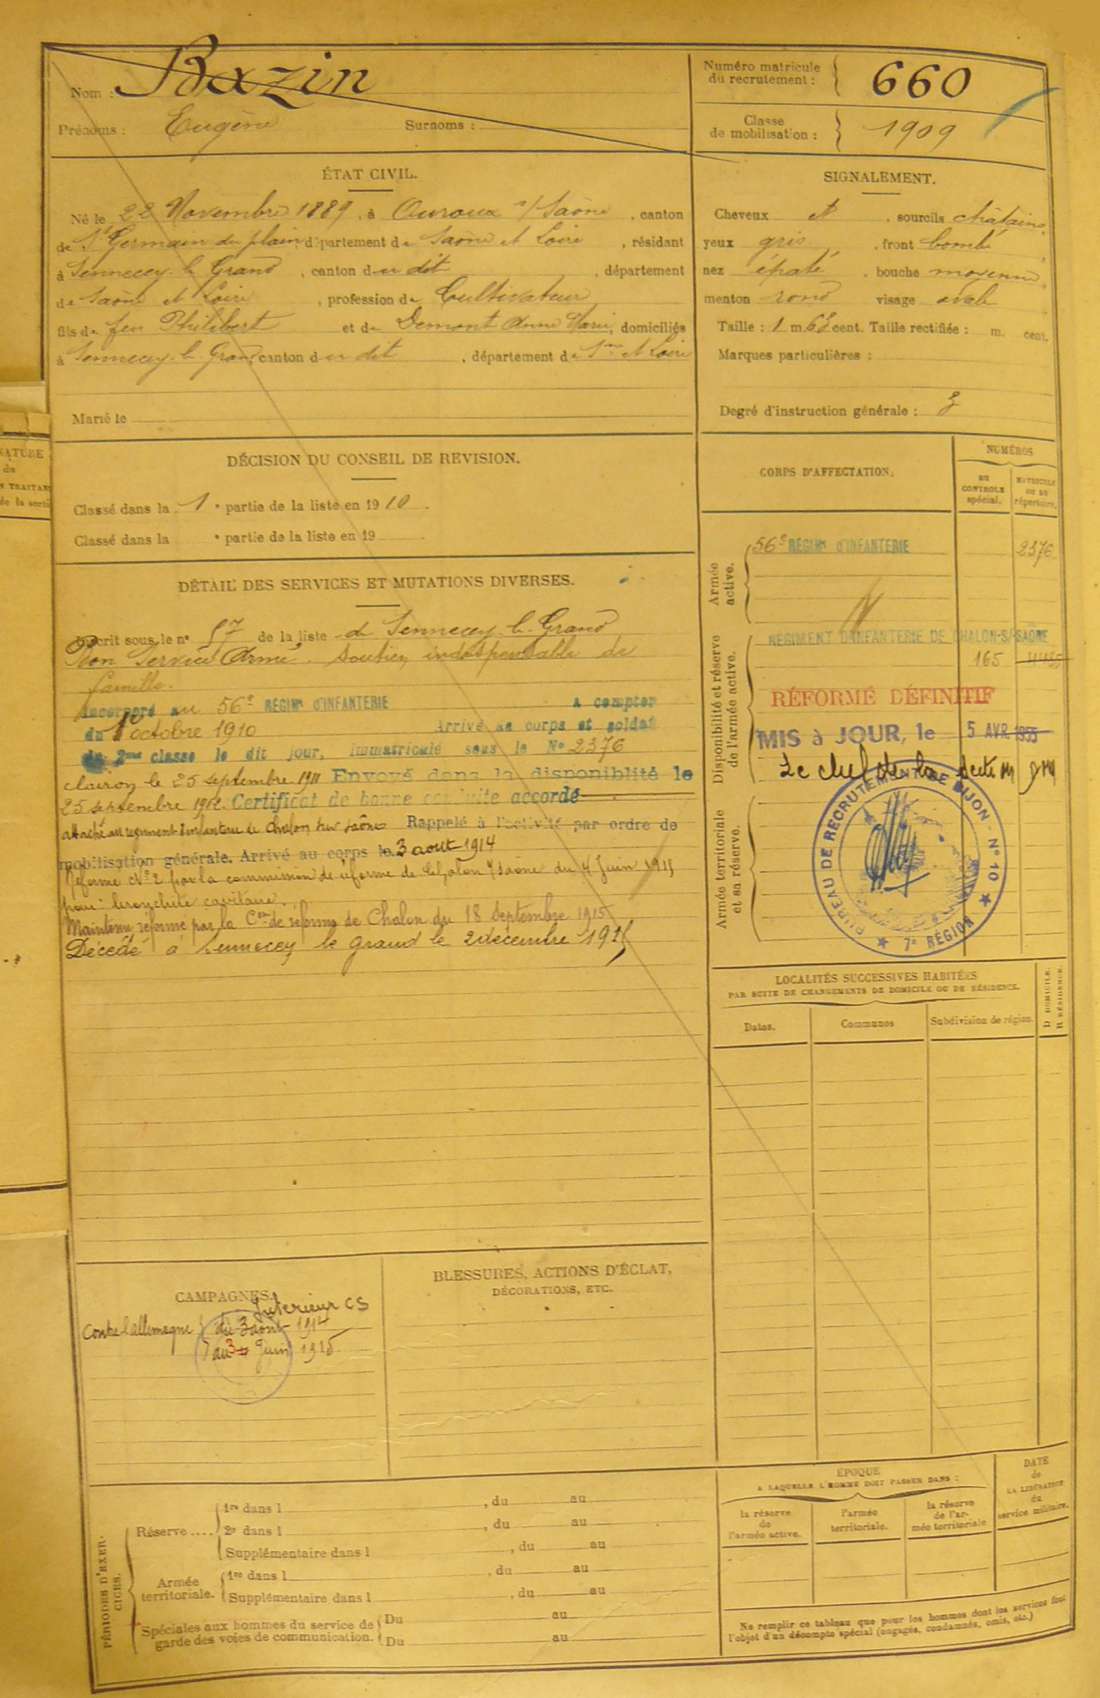 Nom : Bazin
Prénoms : Eugène Surnoms :
Numéro matricule du recrutement : 660
Classe de mobilisation : 1909
ÉTAT CIVIL.
Né le 22 Novembre 1889, à Ouroux s/Saône, canton
de St Germain du plain département de Saône et Loire, résidant
à Sennecey-le-Grand, canton du dit, département
de Saône et Loire, profession de Cultivateur
fils de feu Philibert et de Demont Anne Marie, domiciliés
à Sennecey-le-Grand canton du dit, département de Sne et Loire
Marié le
SIGNALEMENT.
Cheveux et, sourcils châtains,
yeux gris, front bombé,
nez épaté, bouche moyenne,
menton rond visage ovale
Taille : 1 m. 68 cent. Taille rectifiée : m. cent.
Marques particulières :
Degré d'instruction générale : 3
DÉCISION DU CONSEIL DE REVISION.
Classé dans la 1e partie de la liste en 1910.
Classé dans la e partie de la liste en 19
DÉTAIL DES SERVICES ET MUTATIONS DIVERSES.
Inscrit sous le n° 57 de la liste de Sennecey-le-Grand
Bon Service Armé. Soutien indispensable de
famille.
Incorporé au 56e RÉGIMt D'INFANTERIE A compter
du 1er octobre 1910 Arrivé au corps et soldat
de 2me classe le dit jour, immatriculé sous le No 2376
clairon le 25 septembre 1911 Envoyé dans la disponiblité le
25 septembre 1912. Certificat de bonne conduite accordé
attaché au régiment d'infanterie de Chalon sur saône Rappelé à l'activité par ordre de
mobilisation générale. Arrivé au corps le 3 aout 1914
Réformé No 2 par la commission de réforme de Chalon s/ Saône du 4 Juin 1915
pour :
Maintenu réformé par la Con de réforme de Chalon du 18 Septembre 1915
Décédé à Sennecey le grand le 2 décembre 1915
CORPS D'AFFECTATION.
NUMÉROS
au CONTROLE spécial.
MATRICULE ou au répertoire.
Armée active.
56e RÉGIMt D'INFANTERIE 2376
Disponibilité et réserve de l'armée active.
RÉGIMENT D'INFANTERIE DE CHALON-S/-SAÔNE
165
RÉFORMÉ DÉFINITIF
MIS à JOUR, le 5 AVR 1955
Le chef de la
Armée territoriale et sa réserve.
BUREAU DE RECRUTEMENT DE DIJON - N° 10
7e RÉGION
LOCALITÉS SUCCESSIVES HABITÉES
PAR SUITE DE CHANGEMENTS DE DOMICILE OU DE RÉSIDENCE.
Dates. Communes Subdivision de région.
D DOMICILE.
R RÉSIDENCE.
CAMPAGNES.
Intérieur CS
Contre l'allemagne du 3 août 1914
au 3 Juin 1915
BLESSURES, ACTIONS D'ÉCLAT,
DÉCORATIONS, ETC.
PÉRIODES D'EXERCICES.
Réserve ....
1re dans l , du au
2e dans l , du au
Supplémentaire dans l , du au
Armée territoriale.
1re dans l , du au
Supplémentaire dans l , du au
Spéciales aux hommes du service de garde des voies de communication.
Du au
Du au
ÉPOQUE
A LAQUELLE L'HOMME DOIT PASSER DANS :
la réserve de l'armée active.
l'armée territoriale.
la réserve de l'armée territoriale
DATE de LA LIBÉRATION du service militaire.
Ne remplir ce tableau que pour les hommes dont les services font
l'objet d'un décompte spécial (engagés, condamnés, omis, etc.)